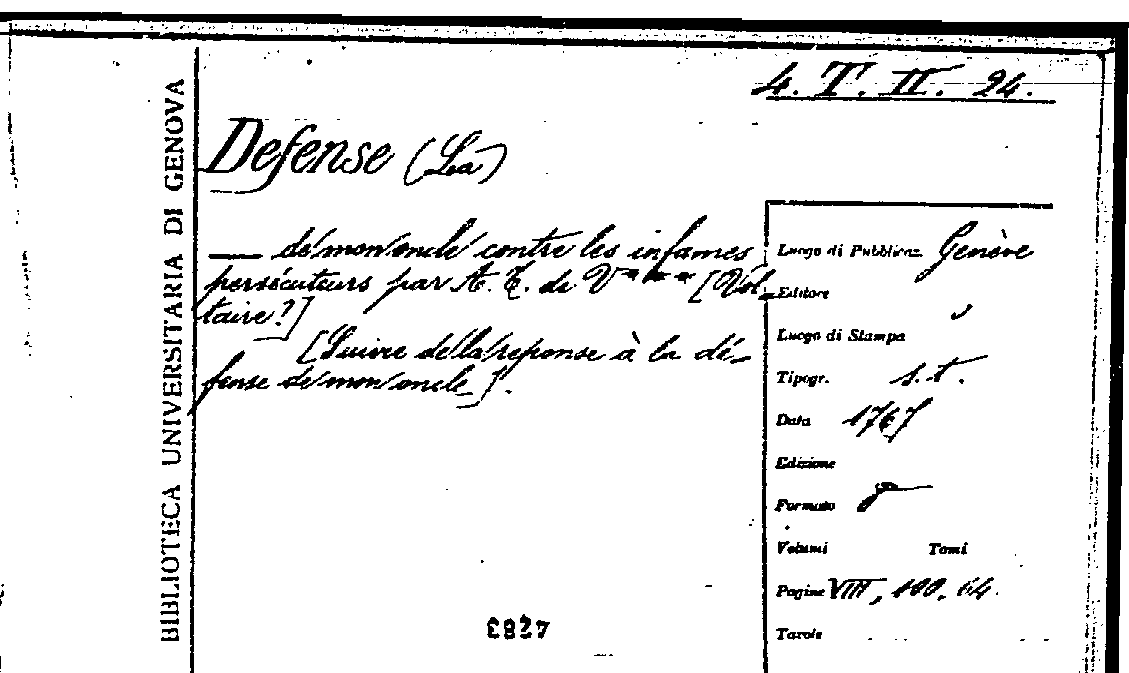 4. T. II. 24.
BIBLIOTECA UNIVERSITARIA DI GENOVA
Defense (La)
— de mon oncle contre les infames
persécuteurs par A. T. de V*** [Vol-
taire?]
[Suivie de la reponse à la dé-
fense de mon oncle].
Luogo di Pubblicaz. Genève
Editore
Luogo di Stampa
Tipogr. s. t.
Data 1767
Edizione
Formato 8
Volumi Tomi
Pagine VIII, 100, 64.
Tavole